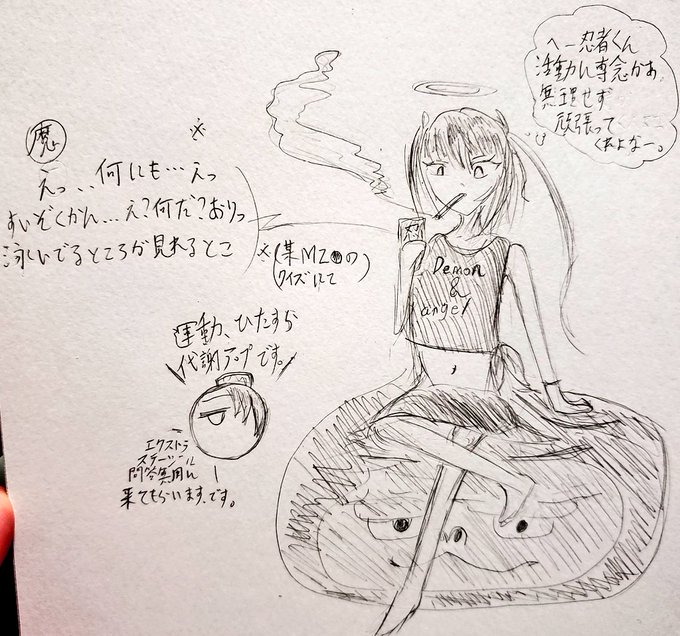 へー忍者くん
活動に専念かぁ
無理せず
頑張って
くれよなー。
魔
※
えっ、、何にも…えっ
すいぞくかん…え?何だ?おりっ
泳いでるところが見れるとこ
※(某MZ●の
クイズにて
忍
Demon
&
angel
運動、ひたすら
代謝アップです。
エクストラ
ステージ
問答無用に
来てもらいます、です。